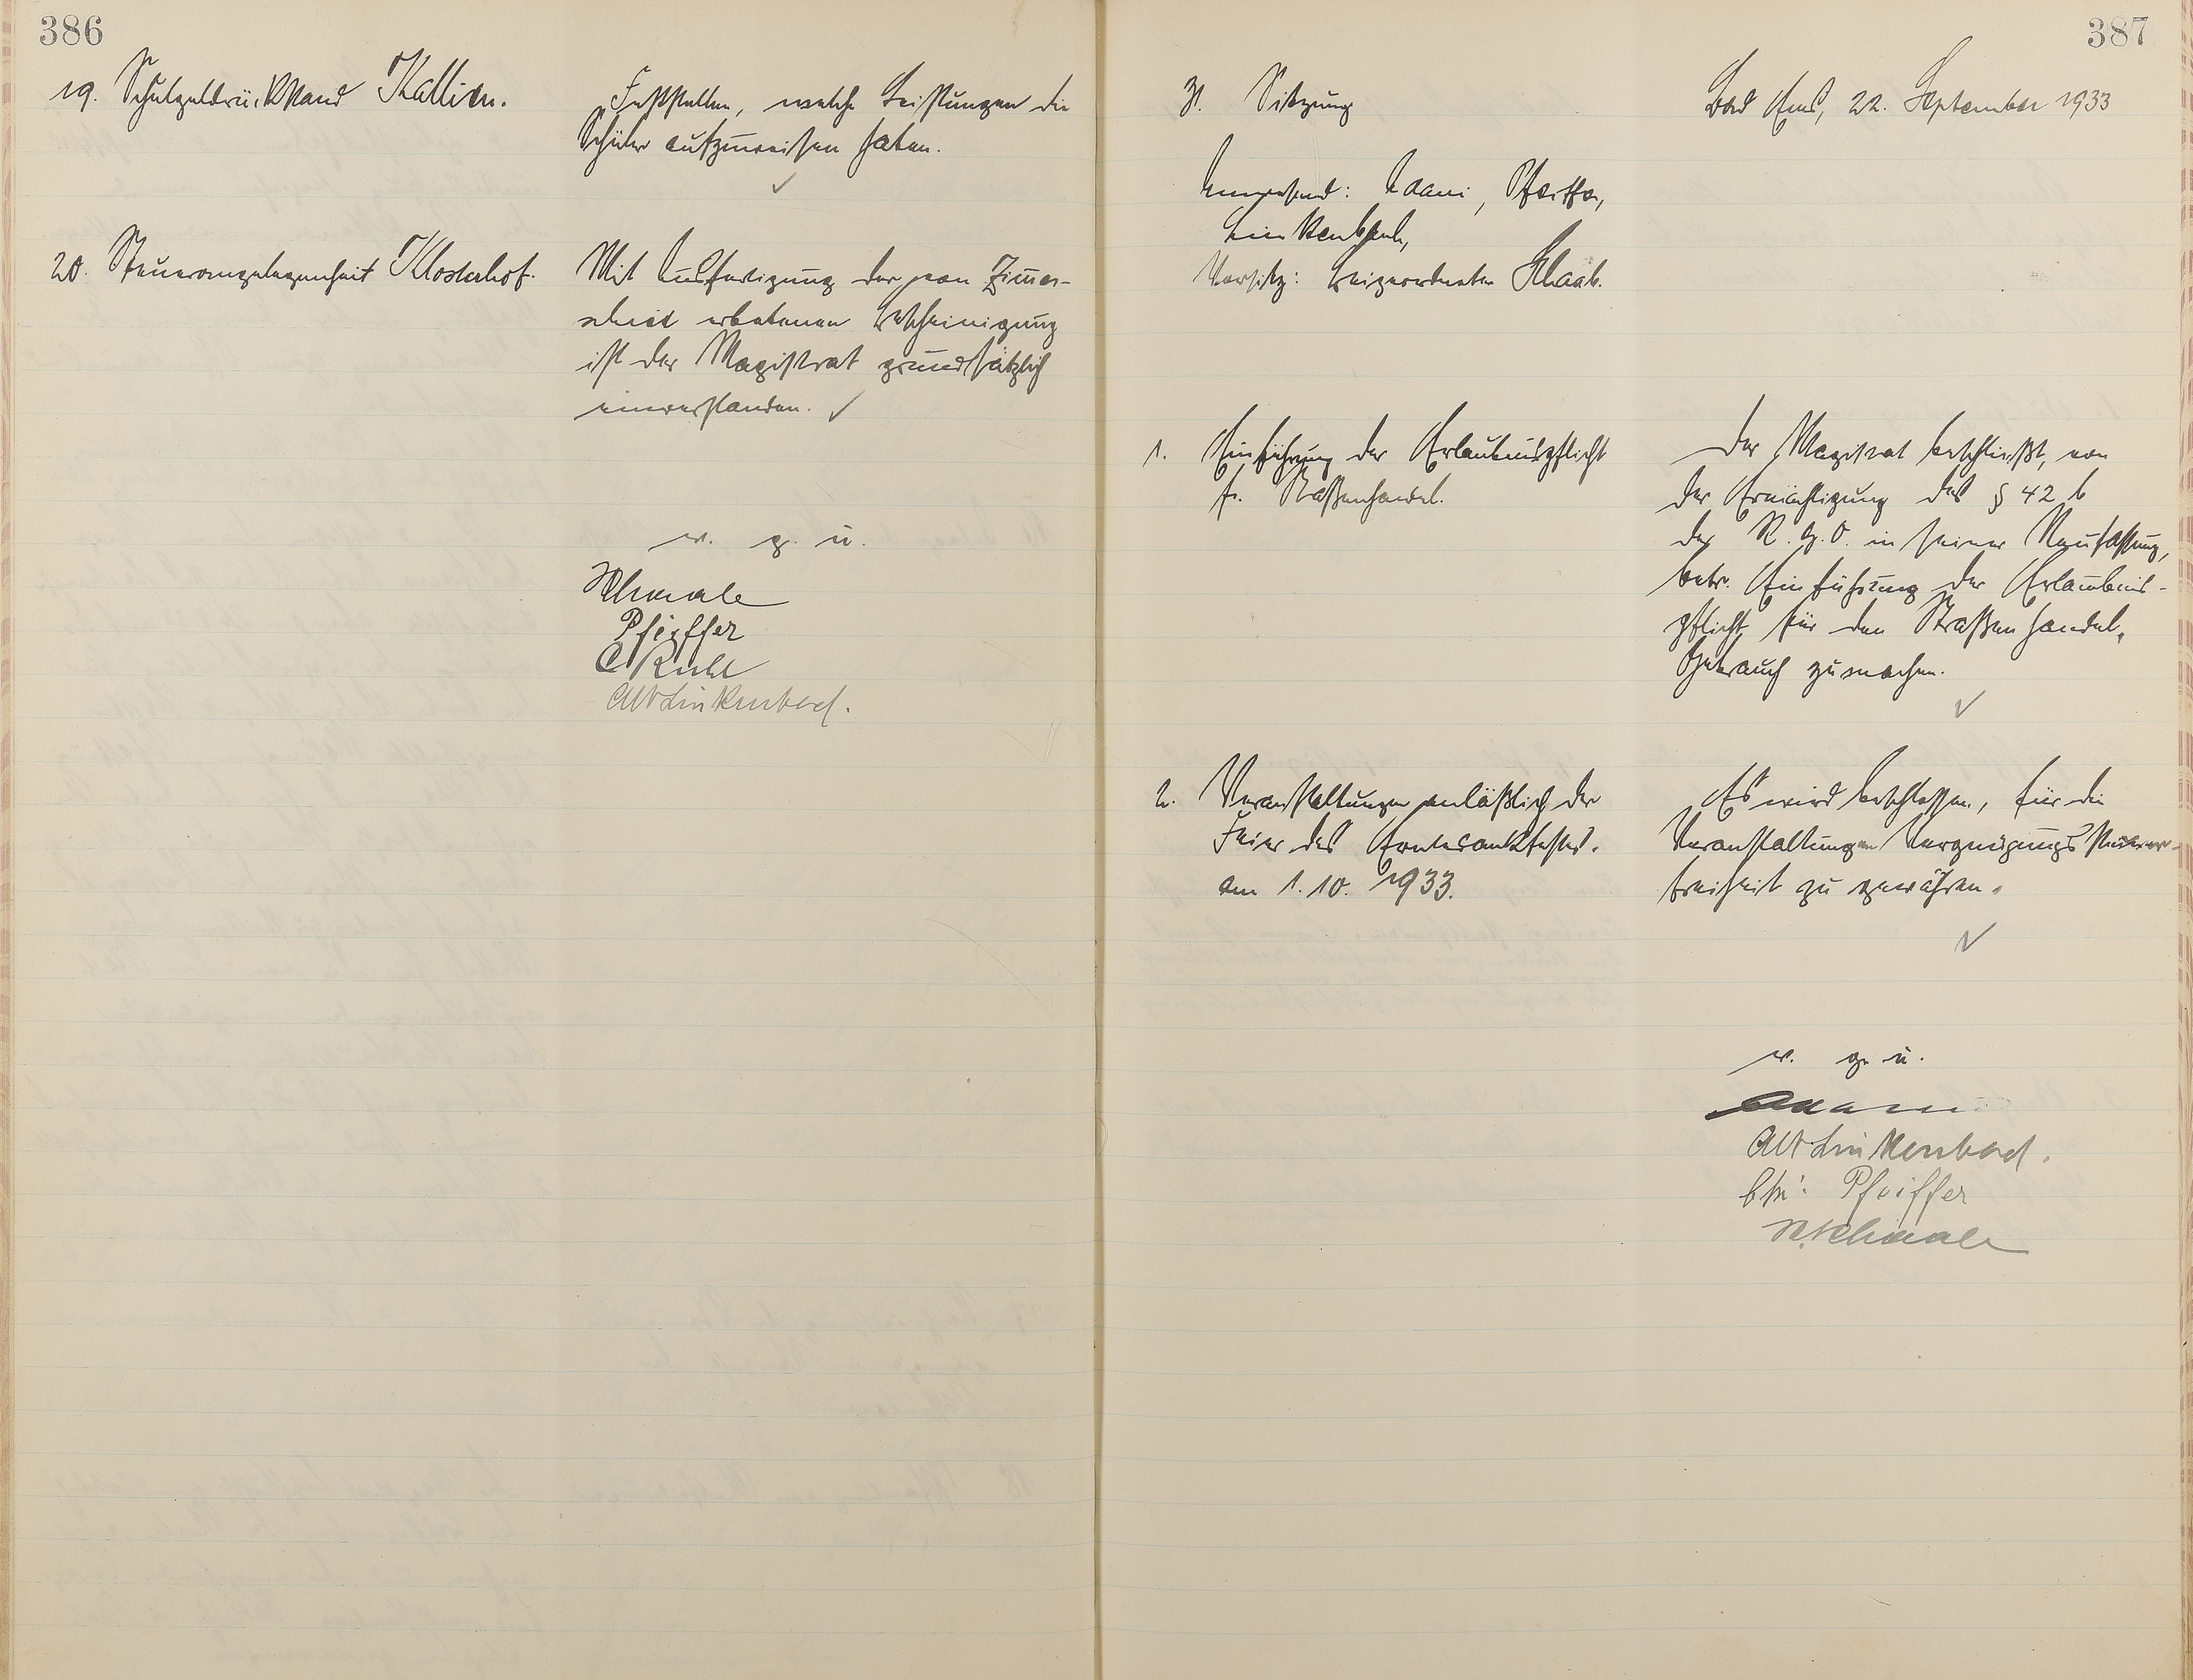 386
19. Schulgeldrückstand Kallien.
Feststellen, welche Leistungen die
Schüler aufzuweisen haben.
20. Steuerangelegenheit Klosterhof.
Mit Ausfertigung der von Zimer-
scheid erbetenen Bescheinigung
ist der Magistrat grundsätzlich
einverstanden.
v. g. u.
Schaale
Pfeiffer
C Ruhl
Alb Linkenbach.
387
31. Sitzung
Bad Ems, 22. September 1933
Anwesend: Adami, Pfeiffer,
Linkenbach,
Vorsitz: Beigeordneter Schaale.
1. Einführung der Erlaubnispflicht
f. Straßenhandel.
Der Magistrat beschließt, von
der Ermächtigung des § 42 b
der R.G.O. in seiner Neufassung,
betr. Einführung der Erlaubnis-
pflicht für den Straßenhandel,
Gebrauch zu machen.
2. Veranstaltungen anläßlich der
Feier des Erntedankfestes.
am 1.10. 1933.
Es wird beschlossen, für die
Veranstaltungen Vergnügungssteuer-
freiheit zu gewähren.
v. g. u.
Adami
Alb Linkenbach.
Pfeiffer
Schaale